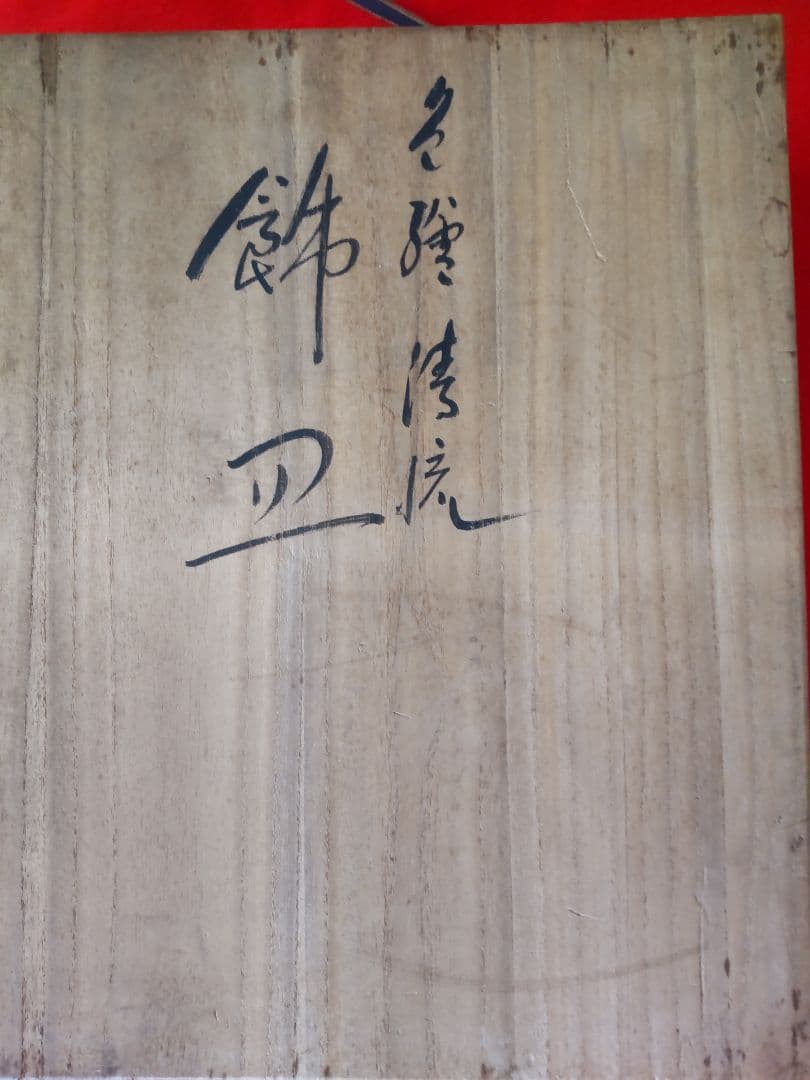 色繪清流
飾皿